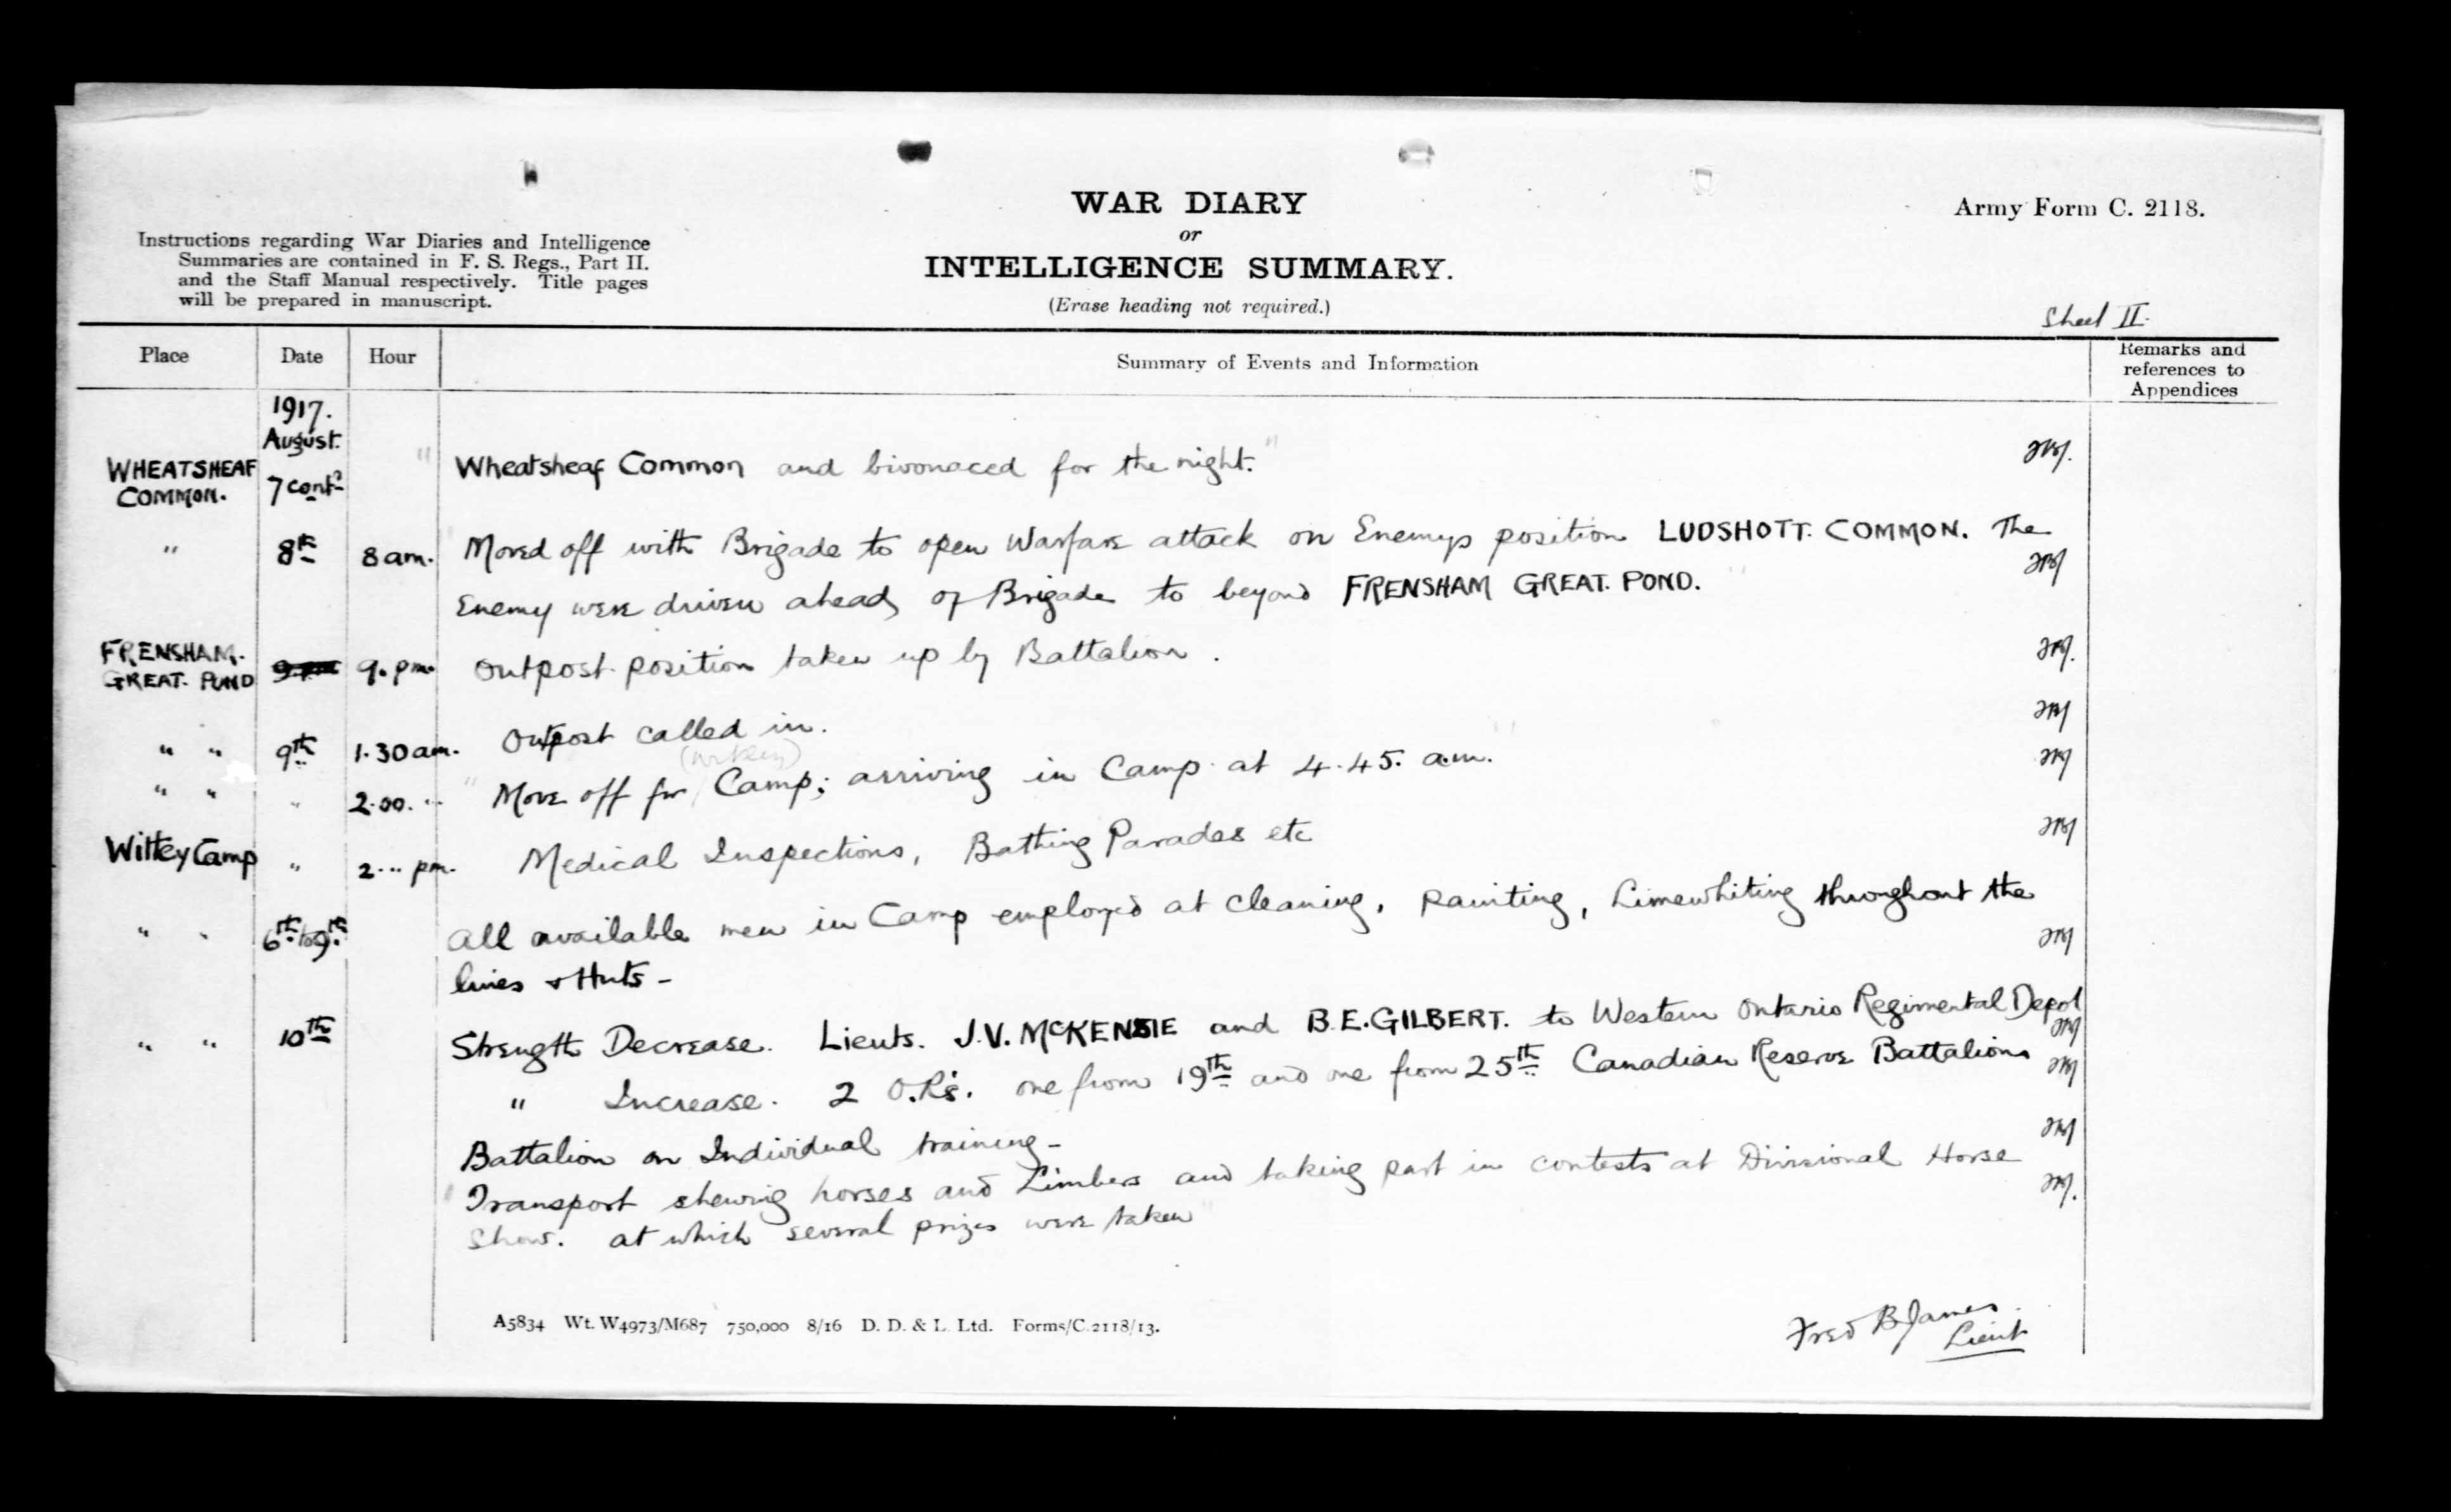 WAR DIARY
or
INTELLIGENCE SUMMARY.
(Erase heading not required.)
Army Form C. 2118.
Instructions regarding War Diaries and Intelligence
Summaries are contained in F. S. Regs., Part II.
and the Staff Manual respectively. Title pages
will be prepared in manuscript.
Sheet II.
Place Date Hour Summary of Events and Information Remarks and
references to
Appendices
1917.
August.
WHEATSHEAF
COMMON. 7 contd " Wheatsheaf Common and bivonaced for the night."
" 8th 8 am. Moved off with Brigade to open Warfare attack on Enemys position LUDSHOTT. COMMON. The
Enemy were driven ahead of Brigade to beyond FRENSHAM GREAT. POND. "
FRENSHAM.
GREAT. POND 9. pm. Outpost position taken up by Battalion.
" " 9th 1.30 am. Outpost called in.
(Witley)
" " " 2.00. " " Move off for Camp; arriving in Camp at 4.45. a.m. "
Witley Camp " 2... pm. Medical Inspections, Bathing Parades etc
" " 6th to 9th. All available men in Camp employed at cleaning, painting, Limewhiting throughout the
lines & Huts -
" " 10th Strength Decrease. Lieuts. J.V. McKENSIE and B.E. GILBERT. to Western Ontario Regimental Depot
" Increase. 2 O.R's. one from 19th and one from 25th Canadian Reserve Battalions
Battalion on Individual training -
" Transport shewing horses and Limbers and taking part in contests at Divisional Horse
Show. at which several prizes were taken "
Fred B James.
Lieut
A5834 Wt. W4973/M687 750,000 8/16 D. D. & L. Ltd. Forms/C.2118/13.